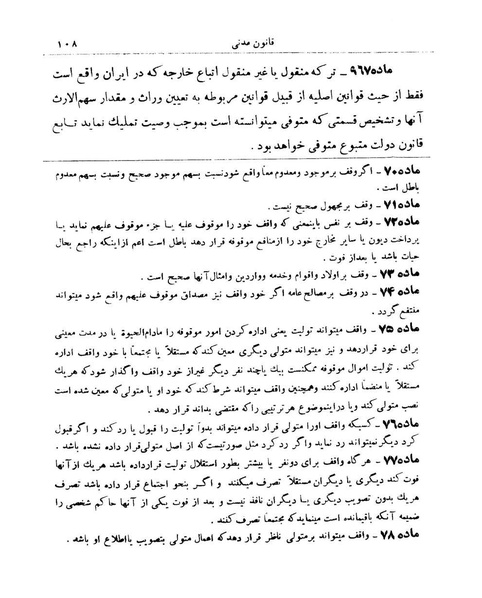 قانون مدنی
۱۰۸
ماده۹۶۷ - ترکه منقول یا غیر منقول اتباع خارجه که در ایران واقع است
فقط از حیث قوانین اصلیه از قبیل قوانین مربوطه به تعیین وراث و مقدار سهم‌الارث
آنها و تشخیص قسمتی که متوفی میتوانسته است بموجب وصیت تملیک نماید تابع
قانون دولت متبوع متوفی خواهد بود .
ماده۷۰ - اگر وقف بر موجود و معدوم معاً واقع شود نسبت بسهم موجود صحیح و نسبت بسهم معدوم
باطل است .
ماده۷۱ - وقف بر مجهول صحیح نیست .
ماده۷۲ - وقف بر نفس باینمعنی که واقف خود را موقوف علیه یا جزء موقوف علیهم نماید یا
پرداخت دیون یا سایر مخارج خود را از منافع موقوفه قرار دهد باطل است اعم از اینکه راجع بحال
حیات باشد یا بعد از فوت .
ماده ۷۳ - وقف بر اولاد و اقوام و خدمه و واردین و امثال آنها صحیح است .
ماده ۷۴ - در وقف بر مصالح عامه اگر خود واقف نیز مصداق موقوف علیهم واقع شود میتواند
منتفع گردد .
ماده ۷۵ - واقف میتواند تولیت یعنی اداره کردن امور موقوفه را مادام‌الحیوة یا در مدت معینی
برای خود قرار دهد و نیز میتواند متولی دیگری معین کند که مستقلاً یا مجتمعاً با خود واقف اداره
کند . تولیت اموال موقوفه ممکنست بیک یا چند نفر دیگر غیر از خود واقف واگذار شود که هریک
مستقلاً یا منضماً اداره کنند و همچنین واقف میتواند شرط کند که خود او یا متولی که معین شده است
نصب متولی کند و یا در اینموضوع هر ترتیبی را که مقتضی بداند قرار دهد .
ماده۷۶ - کسیکه واقف او را متولی قرار داده میتواند بدواً تولیت را قبول یا رد کند و اگر قبول
کرد دیگر نمیتواند رد نماید و اگر رد کرد مثل صورتیست که از اصل متولی قرار داده نشده باشد .
ماده۷۷ - هر گاه واقف برای دو نفر یا بیشتر بطور استقلال تولیت قرار داده باشد هریک از آنها
فوت کند دیگری یا دیگران مستقلاً تصرف میکنند و اگر بنحو اجتماع قرار داده باشد تصرف
هریک بدون تصویب دیگری یا دیگران نافذ نیست و بعد از فوت یکی از آنها حاکم شخصی را
ضمیمه آنکه باقیمانده است مینماید که مجتمعاً تصرف کنند .
ماده ۷۸ - واقف میتواند بر متولی ناظر قرار دهد که اعمال متولی بتصویب یا اطلاع او باشد .